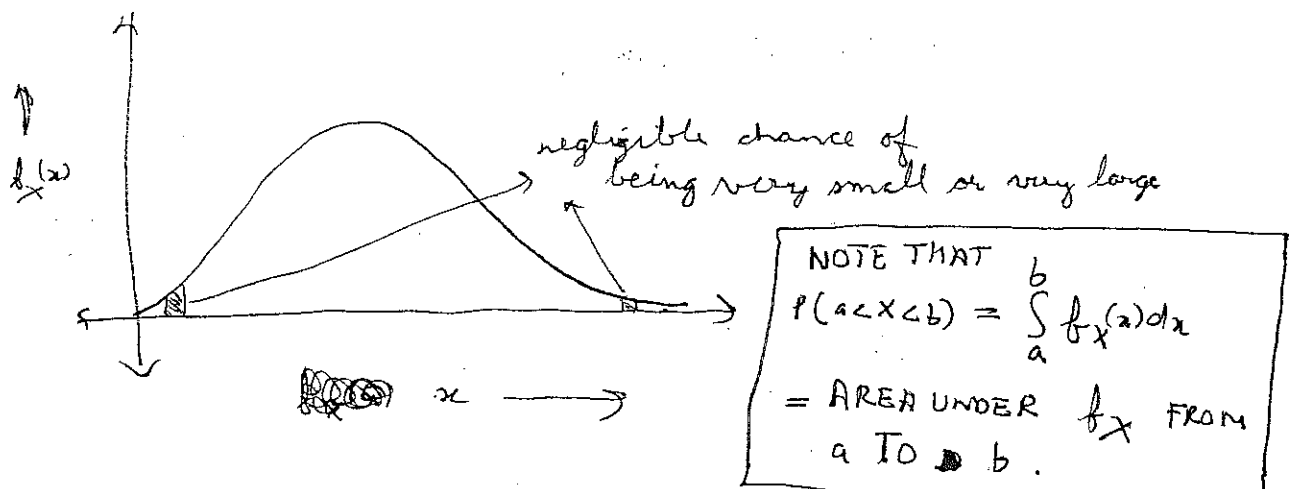 f_X(x)
negligible chance of
being very small or very large
x
NOTE THAT
P(a<X<b) = ∫_a^b f_X(x)dx
= AREA UNDER f_X FROM
a TO b.